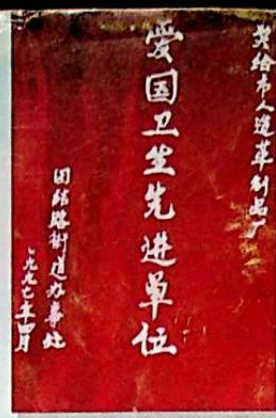 奖给市人造革制品厂
爱国卫生先进单位
团结路街道办事处
一九九七年四月